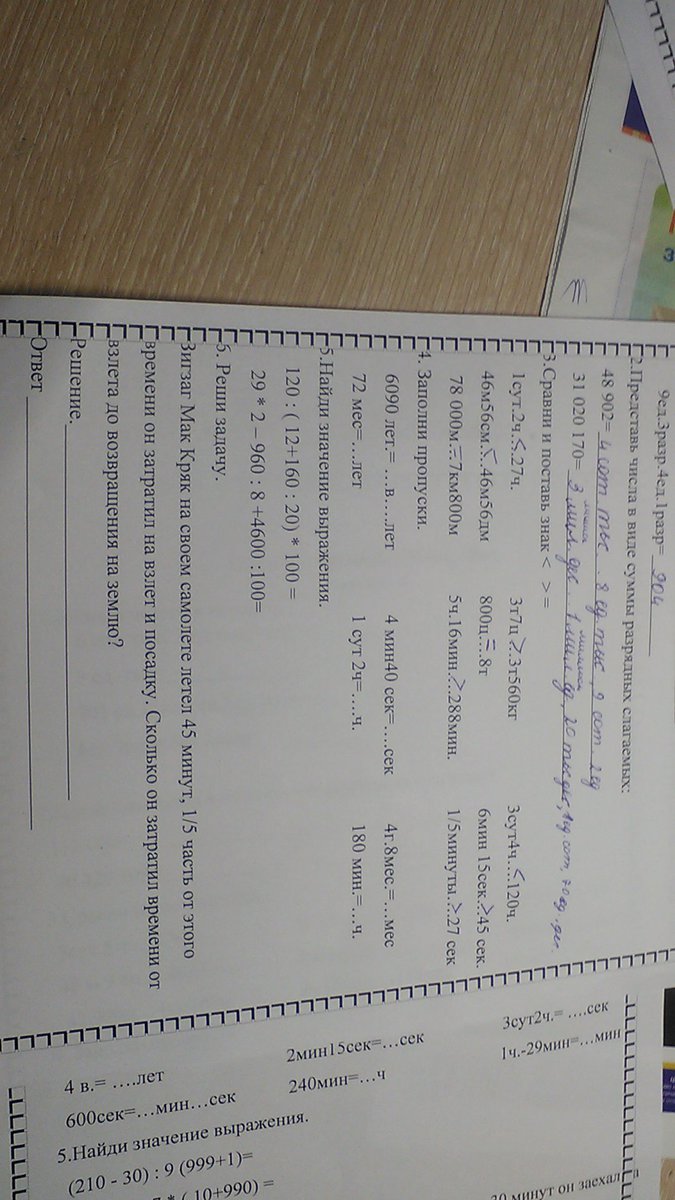 9ед.3разр.4ед.1разр= 904
2.Представь числа в виде суммы разрядных слагаемых:
48 902= 4 сот тыс 8 ед тыс, 9 сот 2 ед
31 020 170= 3 мил. дес 1 мил ед, 20 тыс дес, 1 ед сот, 70 ед. дес.
3.Сравни и поставь знак < > =
1сут.2ч.<.27ч. 3т7ц.>.3т560кг 3сут4ч.…<120ч.
46м56см.<.46м56дм 800ц.=…8т 6мин 15сек.>.45 сек.
78 000м.=.7км800м 5ч.16мин.>.288мин. 1/5минуты.>.27 сек
4. Заполни пропуски.
6090 лет.= …в….лет 4 мин40 сек=….сек 4г.8мес.=…мес
72 мес=…лет 1 сут 2ч=….ч. 180 мин.=…ч.
5.Найди значение выражения.
120 : ( 12+160 : 20) * 100 =
29 * 2 – 960 : 8 +4600 :100=
6. Реши задачу.
Зигзаг Мак Кряк на своем самолете летел 45 минут, 1/5 часть от этого
времени он затратил на взлет и посадку. Сколько он затратил времени от
взлета до возвращения на землю?
Решение.
Ответ
3сут2ч.= ….сек
1ч.-29мин=…мин
2мин15сек=…сек
240мин=…ч
4 в.= ….лет
600сек=…мин…сек
5.Найди значение выражения.
(210 - 30) : 9 (999+1)=
* ( 10+990) =
минут он заехал